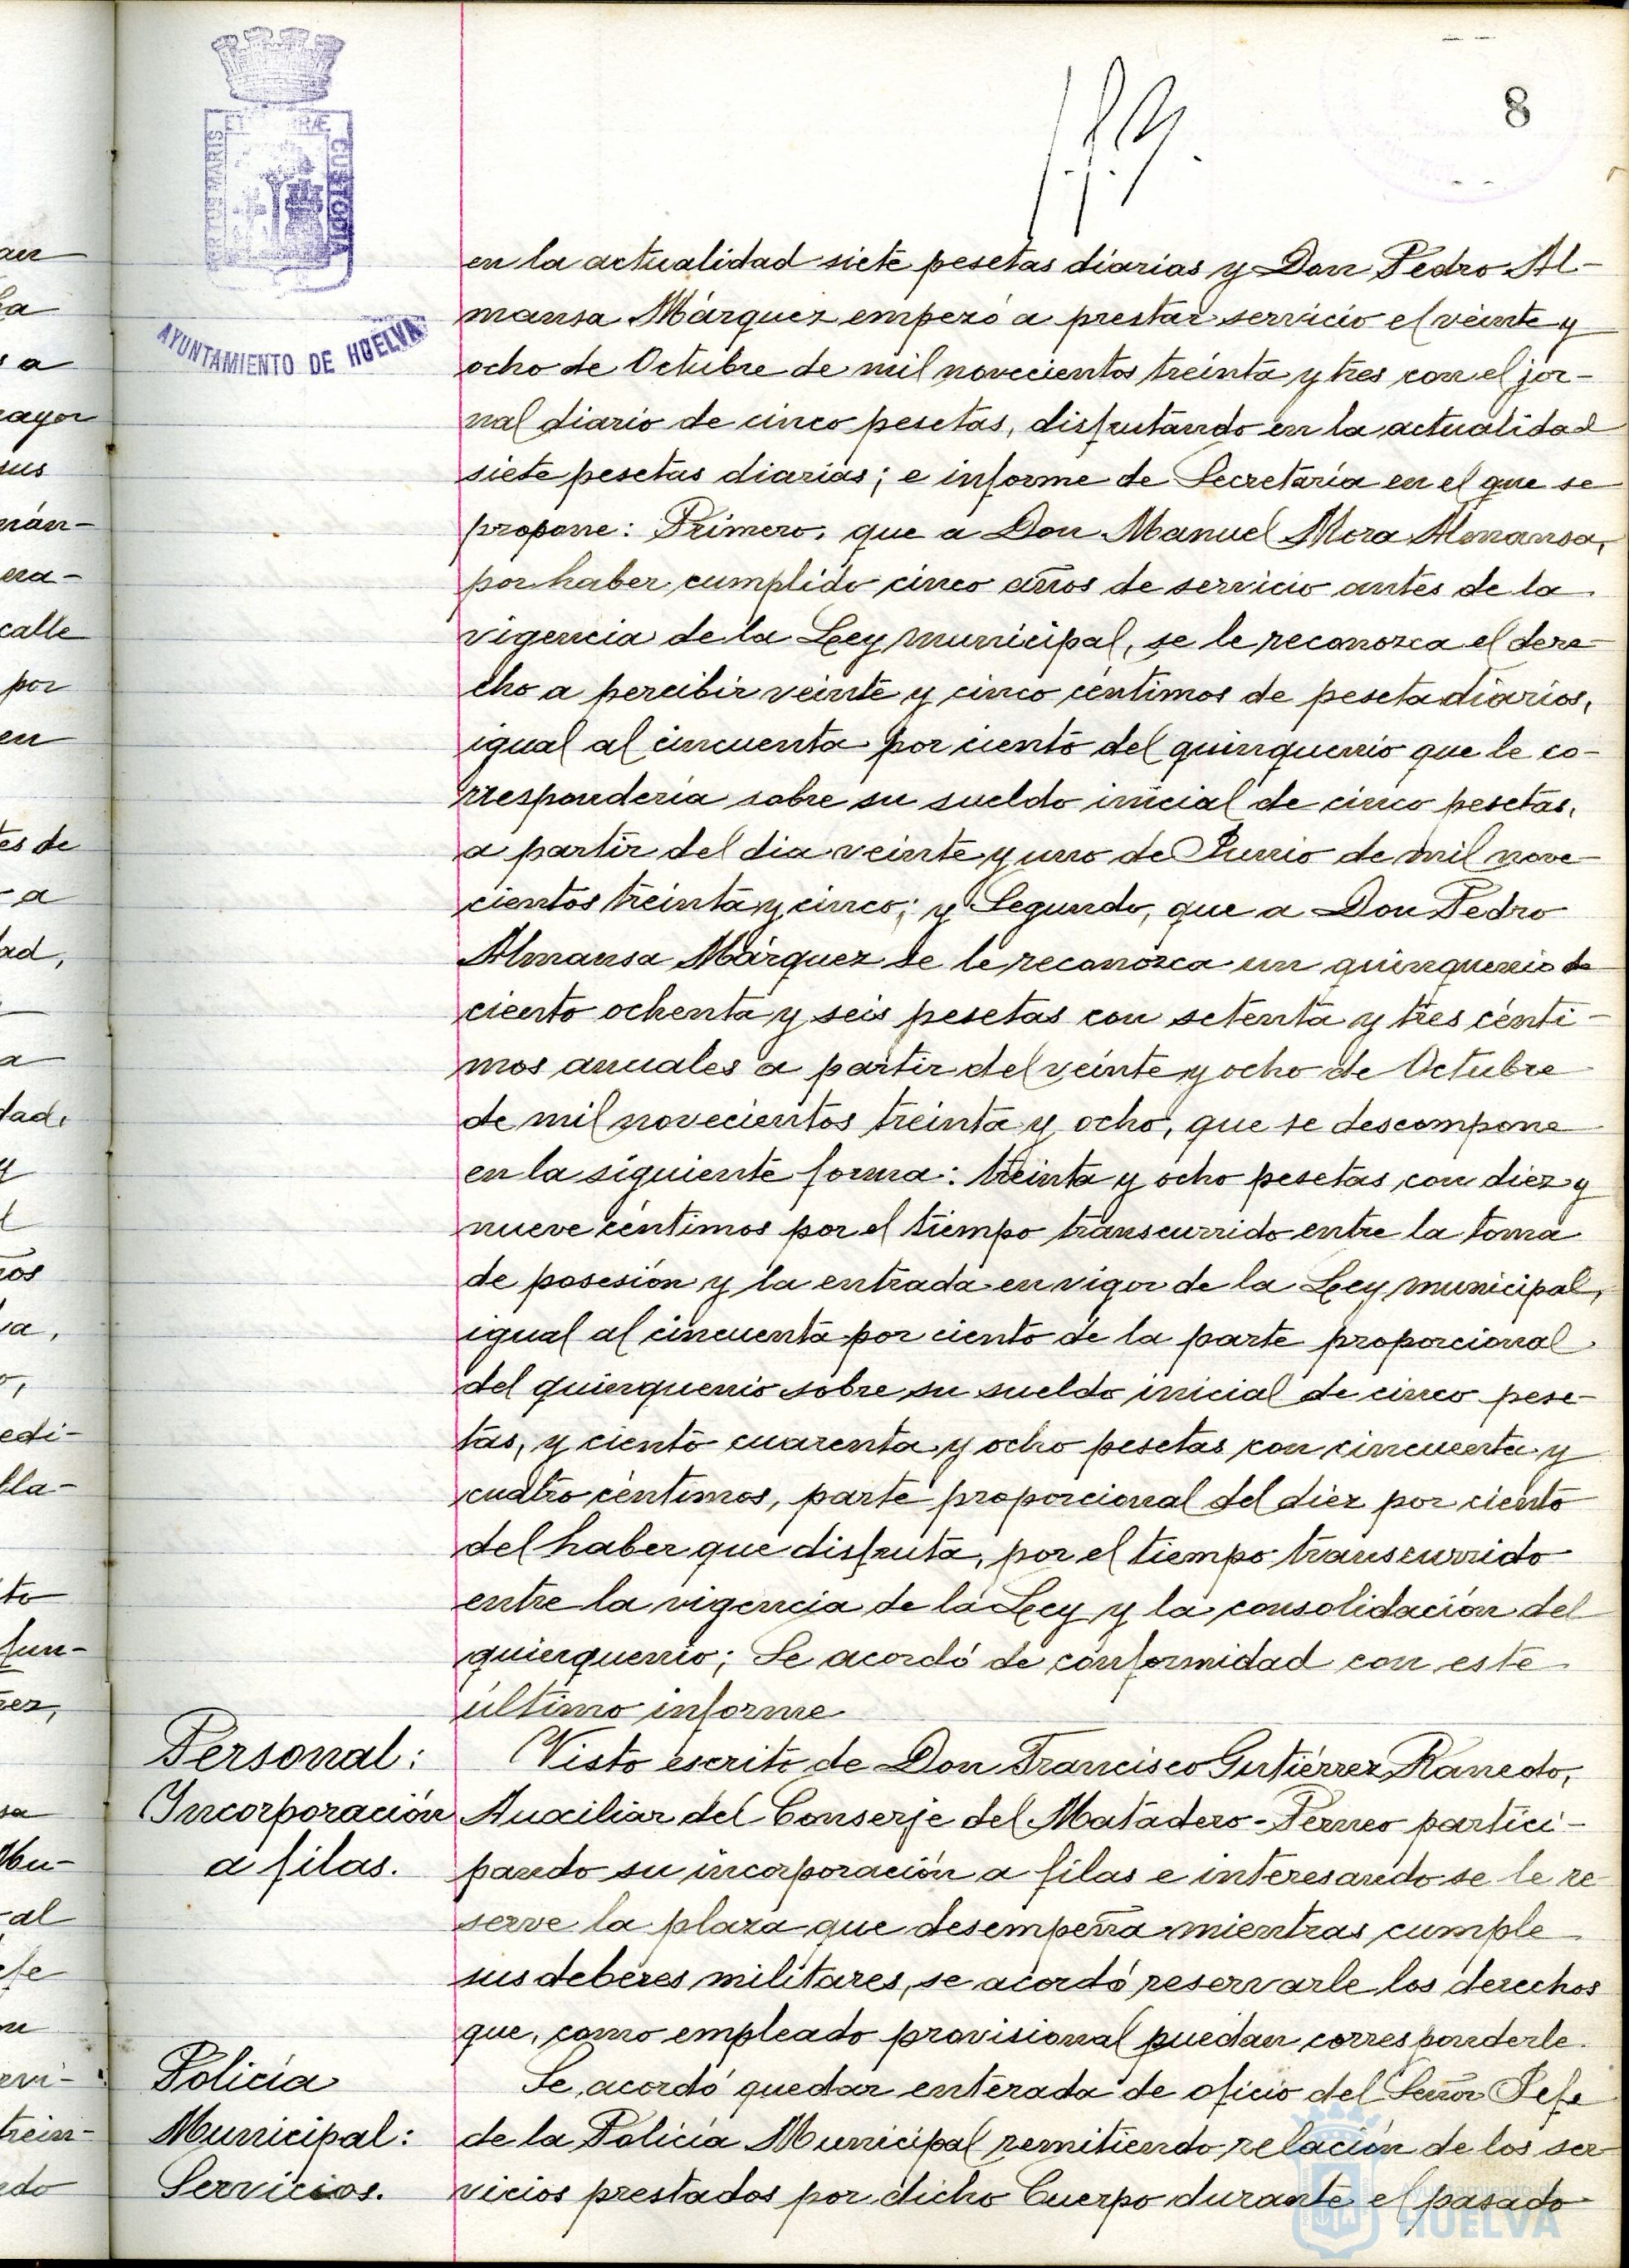 8
PORTUS MARIS ET TERRÆ CUSTODIA
AYUNTAMIENTO DE HUELVA
en la actualidad siete pesetas diarias y Don Pedro Al-
mansa Márquez empezó a prestar servicio el veinte y
ocho de Octubre de mil novecientos treinta y tres con el jor-
nal diario de cinco pesetas, disfrutando en la actualidad
siete pesetas diarias; e informe de Secretaría en el que se
propone: Primero, que a Don Manuel Mora Almansa,
por haber cumplido cinco años de servicio antes de la
vigencia de la Ley municipal, se le reconozca el dere-
cho a percibir veinte y cinco céntimos de peseta diarios,
igual al cincuenta por ciento del quinquenio que le co-
rrespondería sobre su sueldo inicial de cinco pesetas,
a partir del dia veinte y uno de Junio de mil nove-
cientos treinta y cinco; y Segundo, que a Don Pedro
Almansa Márquez se le reconozca un quinquenio de
ciento ochenta y seis pesetas con setenta y tres cénti-
mos anuales a partir del veinte y ocho de Octubre
de mil novecientos treinta y ocho, que se descompone
en la siguiente forma: treinta y ocho pesetas con diez y
nueve céntimos por el tiempo transcurrido entre la toma
de posesión y la entrada en vigor de la Ley municipal,
igual al cincuenta por ciento de la parte proporcional
del quinquenio sobre su sueldo inicial de cinco pese-
tas, y ciento cuarenta y ocho pesetas con cincuenta y
cuatro céntimos, parte proporcional del diez por ciento
del haber que disfruta, por el tiempo transcurrido
entre la vigencia de la Ley y la consolidación del
quinquenio; Se acordó de conformidad con este
último informe
Personal:
Incorporación
a filas.
Visto escrito de Don Francisco Gutiérrez Ranedo,
Auxiliar del Conserje del Matadero-Perneo partici-
pando su incorporación a filas e interesando se le re
serve la plaza que desempeña mientras cumple
sus deberes militares, se acordó reservarle los derechos
que, como empleado provisional puedan corresponderle.
Policía
Municipal:
Servicios.
Se acordó quedar enterada de oficio del Señor Jefe
de la Policía Municipal remitiendo relación de los ser
vicios prestados por dicho Cuerpo durante el pasado
Ayuntamiento de
HUELVA